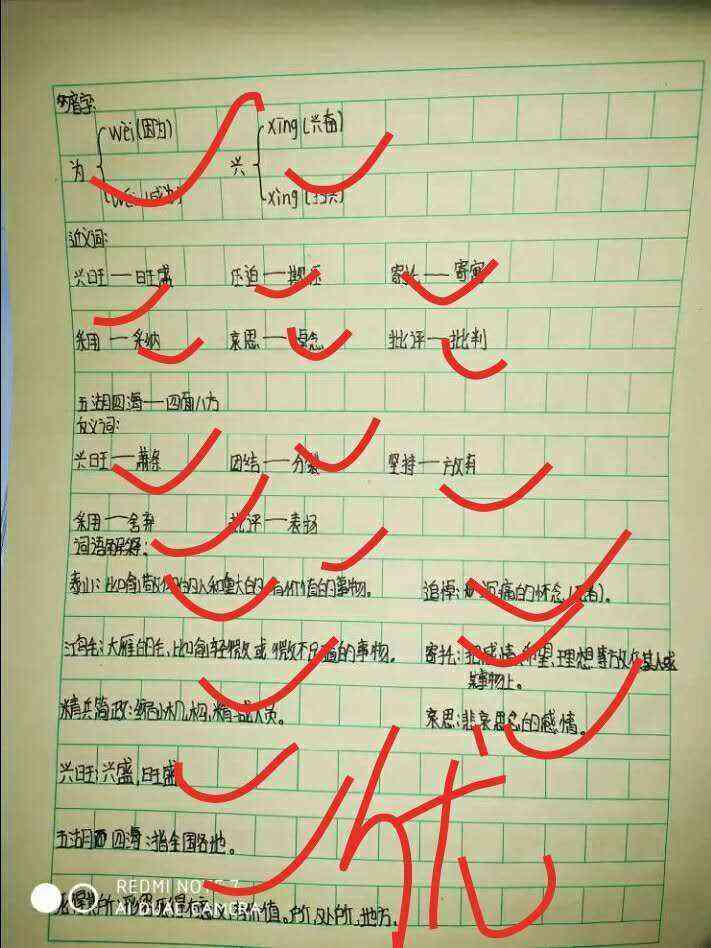 多音字:
wèi(因为) xīng(兴奋)
为 兴
wéi(成为) xìng(
近义词:
兴旺—旺盛 压迫— 寄托—寄寓
采用—采纳 哀思— 批评—批判
五湖四海—四面八方
反义词:
兴旺—萧条 团结—分裂 坚持—放弃
采用—舍弃 批评—表扬
词语解释:
泰山:比喻敬仰的人和重大的 有价值的事物。 追悼:沉痛的怀念(死者)。
鸿毛:大雁的毛,比喻轻微或 微不足道的事物。 寄托:把感情、希望、理想等放在某人或
某事物上。
精兵简政:缩小机构,精 人员。 哀思:悲哀思念的感情。
兴旺:兴盛,旺盛
五湖四海:指全国各地。
价值。 所,处所,地方。
优
REDMI NOTE 7
AI DUAL CAMERA